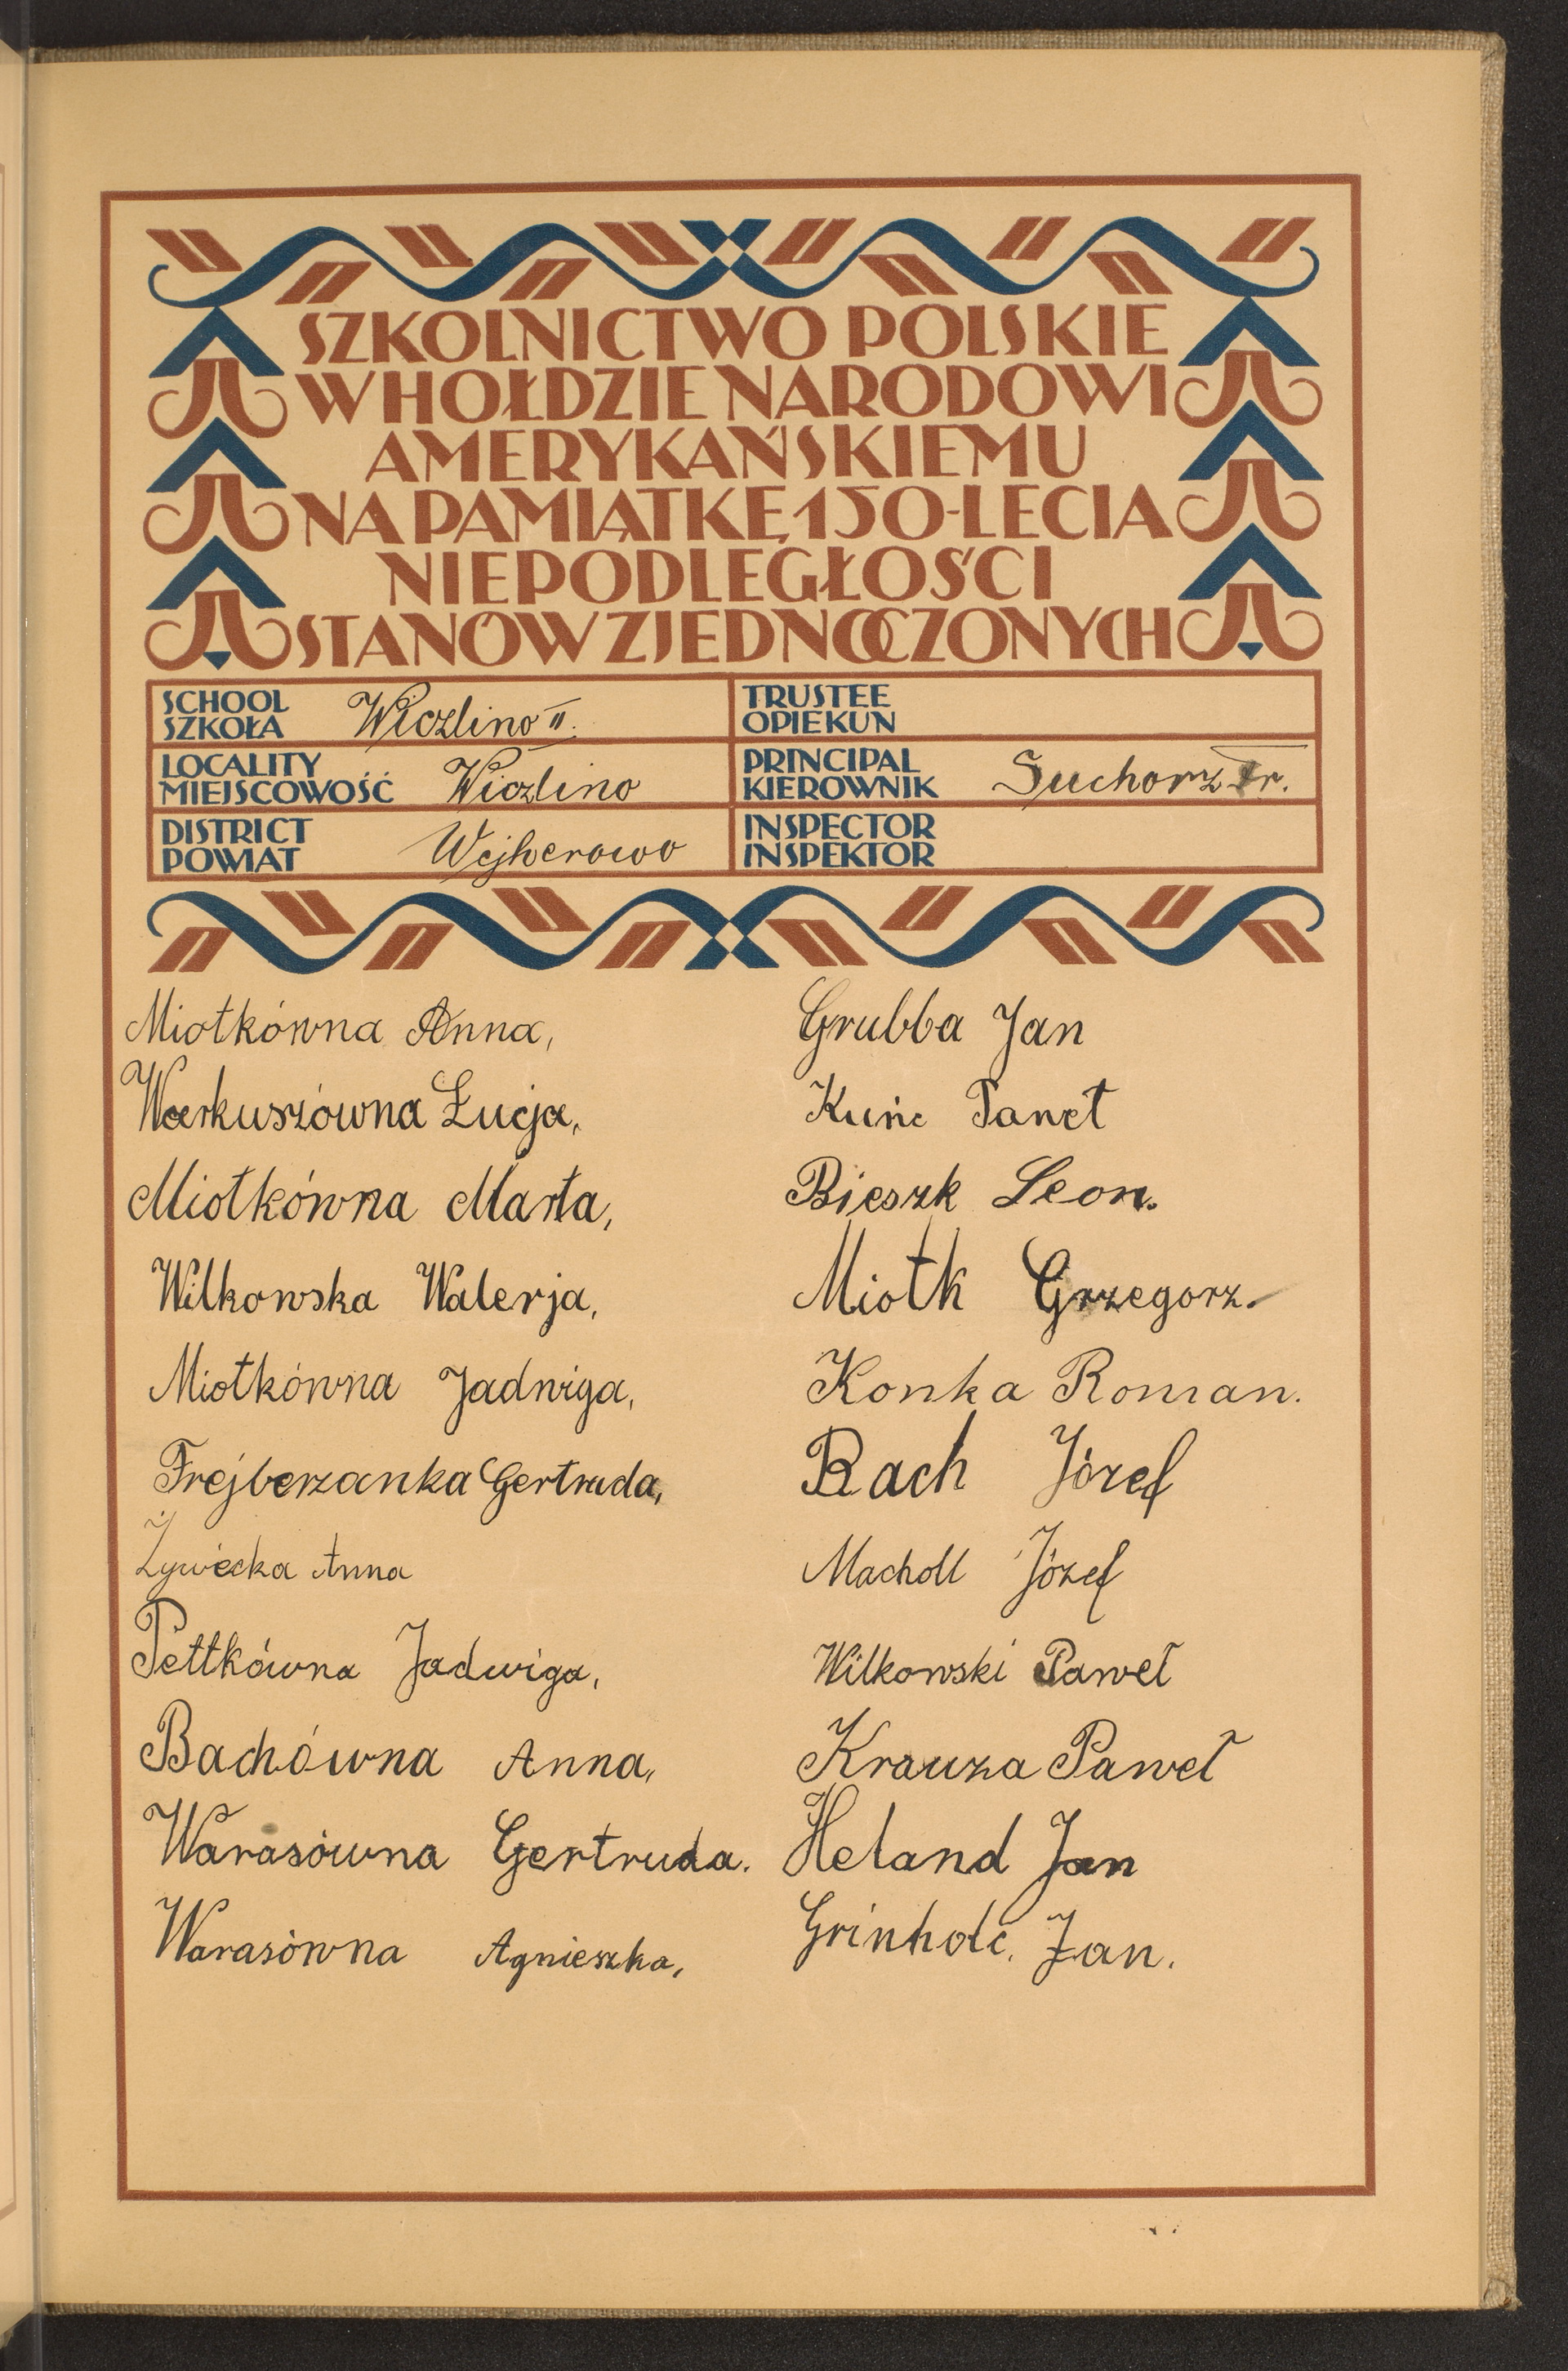 SZKOLNICTWO POLSKIE
W HOŁDZIE NARODOWI
AMERYKAŃSKIEMU
NA PAMIĄTKĘ 150-LECIA
NIEPODLEGŁOŚCI
STANÓW ZJEDNOCZONYCH
SCHOOL
SZKOŁA Wiczlino II.
TRUSTEE
OPIEKUN
LOCALITY
MIEJSCOWOŚĆ Wiczlino
PRINCIPAL
KIEROWNIK Suchorz Fr.
DISTRICT
POWIAT Wejherowo
INSPECTOR
INSPEKTOR
Miotkówna Anna,
Warkuszówna Łucja,
Miotkówna Marta,
Wilkowska Walerja,
Miotkówna Jadwiga,
Frejberzanka Gertruda,
Żywiecka Anna
Pettkówna Jadwiga,
Bachówna Anna,
Warasówna Gertruda.
Warasówna Agnieszka,
Grubba Jan
Kunc Paweł
Bieszk Leon.
Miotk Grzegorz.
Konka Roman.
Rach Józef
Macholl Józef
Wilkowski Paweł
Krauza Paweł
Heland Jan
Grinholc. Jan.